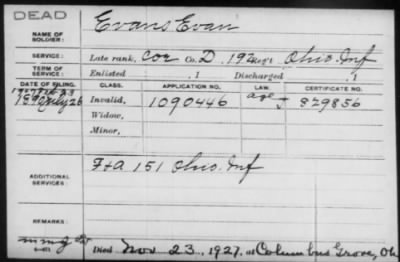 DEAD
NAME OF SOLDIER: Evans Evan
SERVICE: Late rank, Cor Co. D, 192 Reg't Ohio Inf
TERM OF SERVICE: Enlisted , 1 Discharged , 1
DATE OF FILING. CLASS. APPLICATION NO. LAW. CERTIFICATE NO.
Invalid, 1090446 age 829856
Widow,
Minor,
ADDITIONAL SERVICES: F & A 151 Ohio Inf
REMARKS:
Died Nov. 23, 1927, at Columbus Grove, Oh